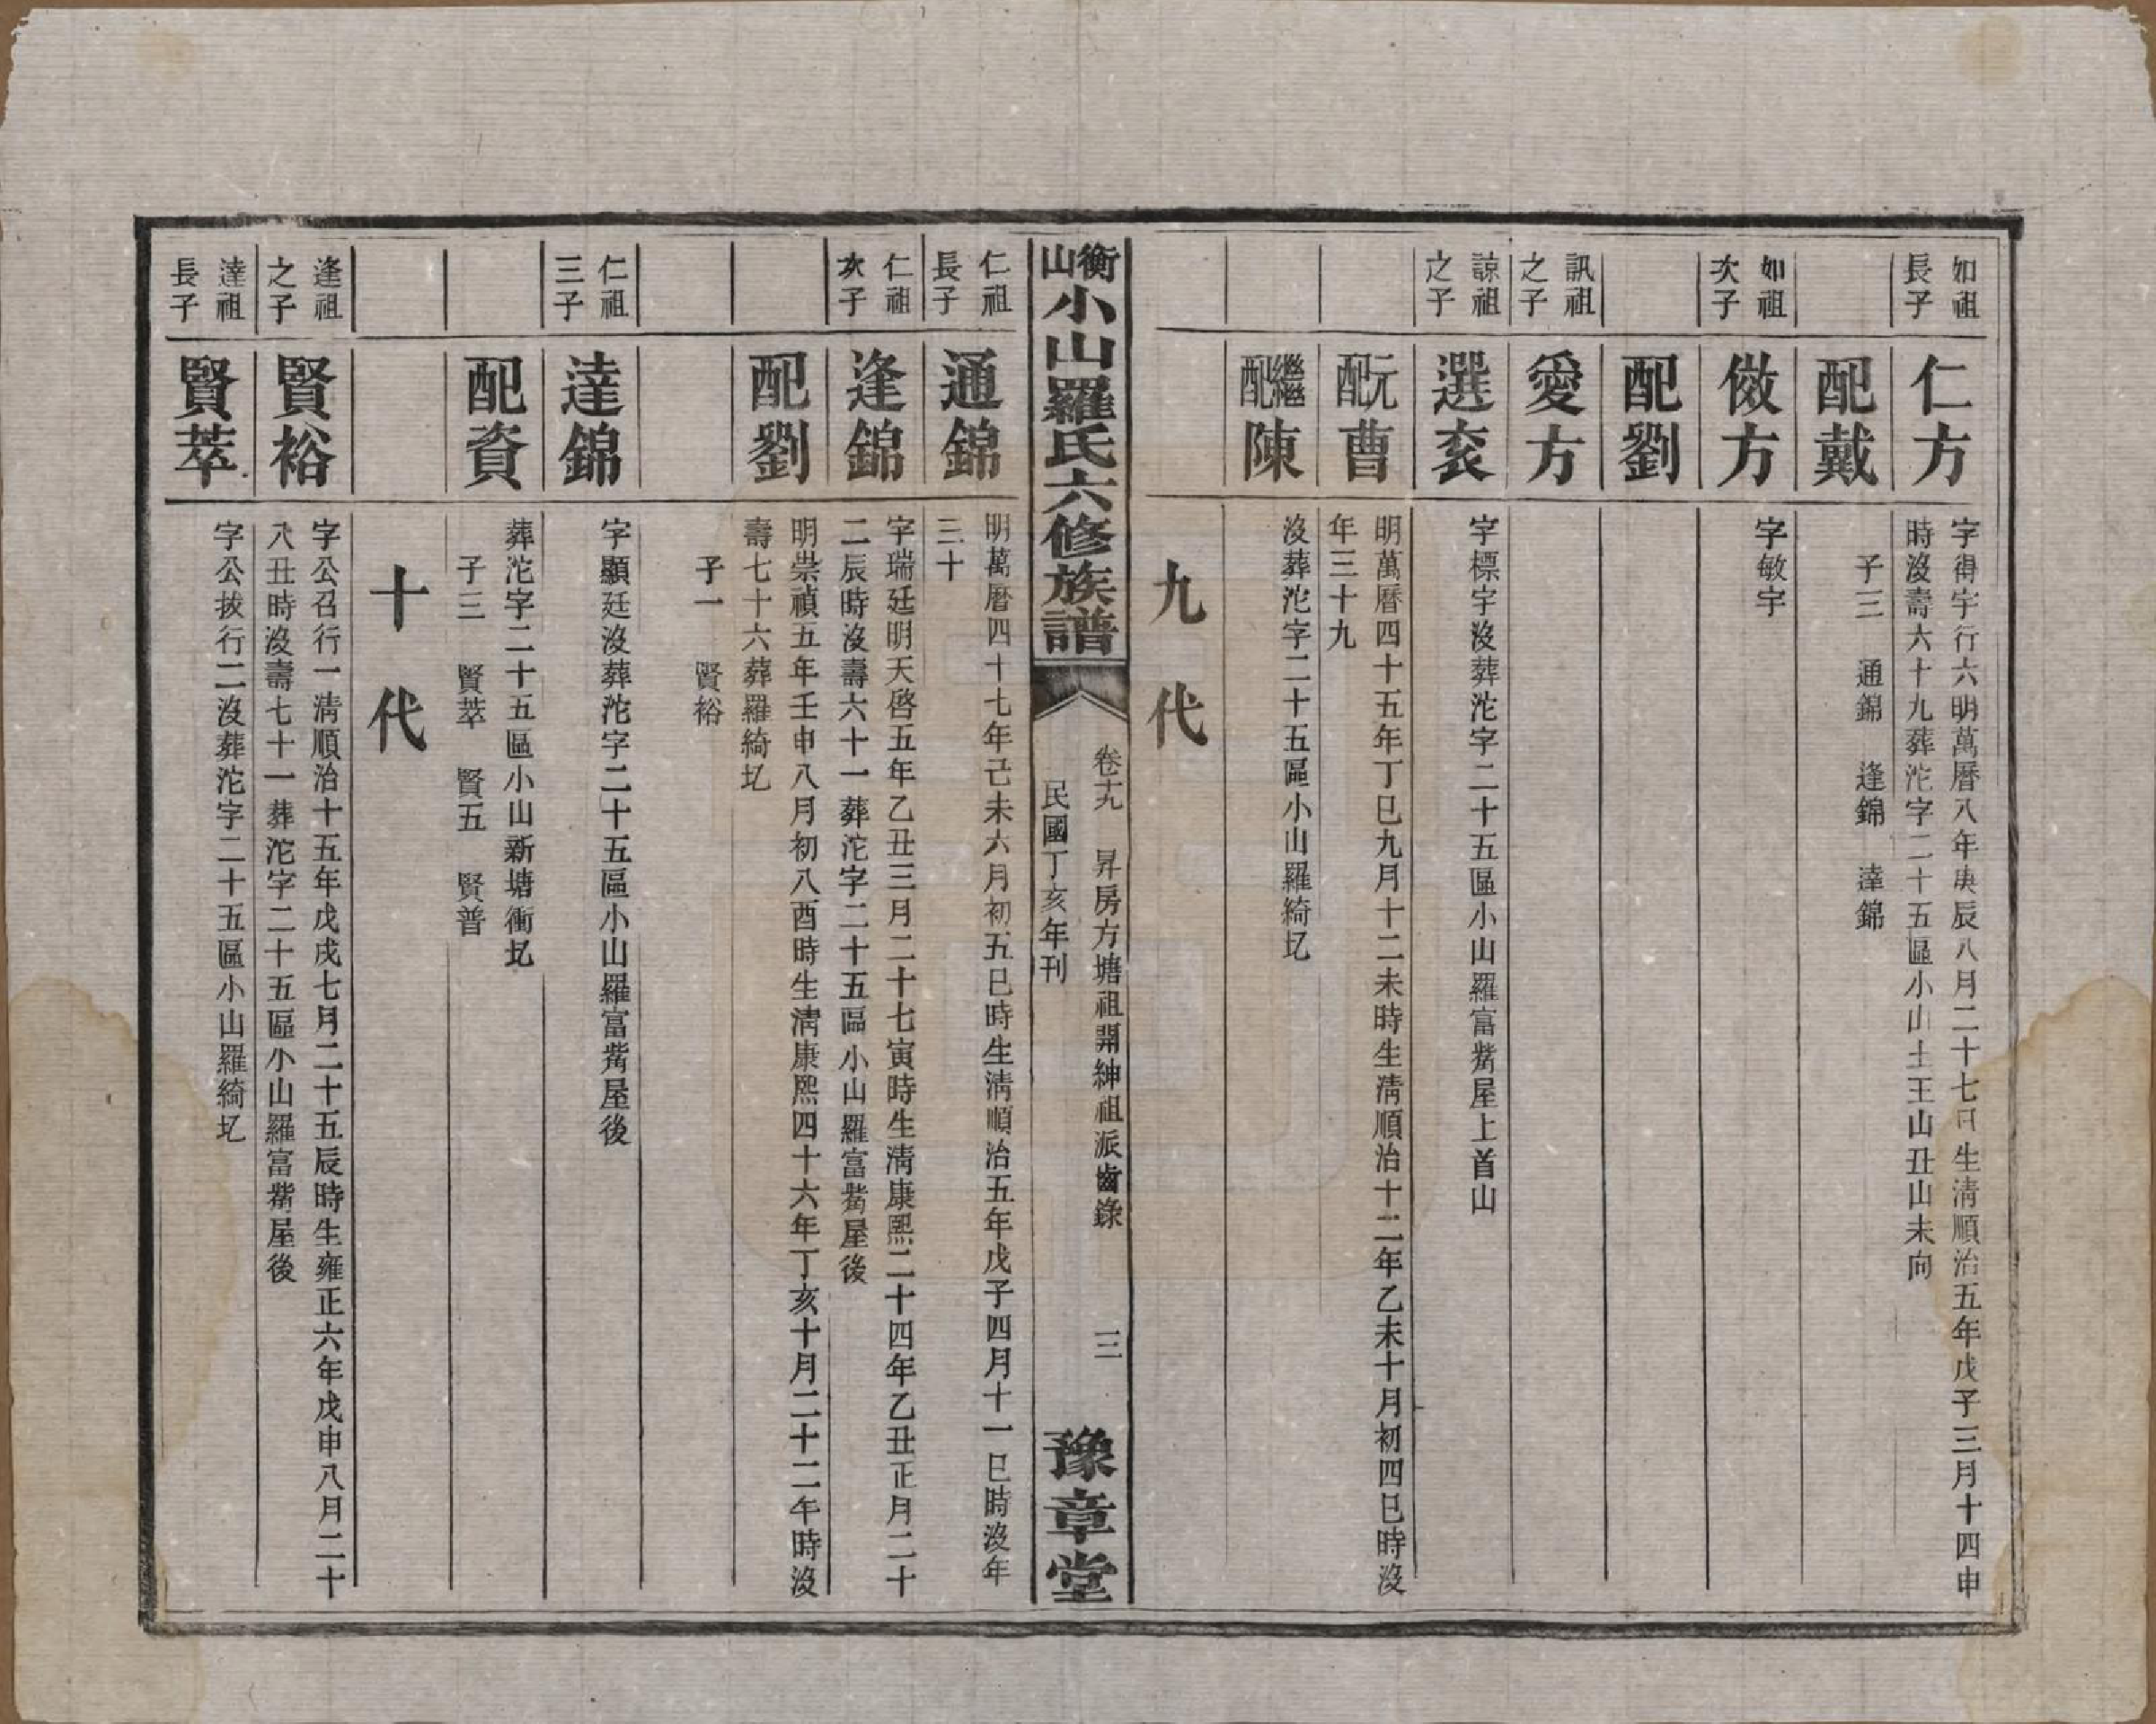 如祖
長子
仁方
字得宇行六明萬曆八年庚辰八月二十七日生淸順治五年戊子三月十四申
時沒壽六十九葬沱字二十五區小山土王山丑山未向
配戴
子三　通錦　逢錦　達錦
如祖
次子
傚方
字敏宇
配劉
訊祖
之子
愛方
諒祖
之子
選袞
字標宇沒葬沱字二十五區小山羅富觜屋上首山
元配曹
明萬曆四十五年丁巳九月十二未時生淸順治十二年乙未十月初四巳時沒
年三十九
繼配陳
沒葬沱字二十五區小山羅綺圫
九代
衡山小山羅氏六修族譜
卷十九　昇房方塘祖開紳祖派齒錄　三
民國丁亥年刊
豫章堂
仁祖
長子
通錦
明萬曆四十七年己未六月初五巳時生淸順治五年戊子四月十一巳時沒年
三十
仁祖
次子
逢錦
字瑞廷明天啓五年乙丑三月二十七寅時生淸康熙二十四年乙丑正月二十
二辰時沒壽六十一葬沱字二十五區小山羅富觜屋後
配劉
明崇禎五年壬申八月初八酉時生淸康熙四十六年丁亥十月二十二午時沒
壽七十六葬羅綺圫
子一　賢裕
仁祖
三子
達錦
字顯廷沒葬沱字二十五區小山羅富觜屋後
配資
葬沱字二十五區小山新塘衝圫
子三　賢萃　賢五　賢普
十代
逢祖
之子
賢裕
字公召行一淸順治十五年戊戌七月二十五辰時生雍正六年戊申八月二十
八丑時沒壽七十一葬沱字二十五區小山羅富觜屋後
達祖
長子
賢萃
字公拔行二沒葬沱字二十五區小山羅綺圫